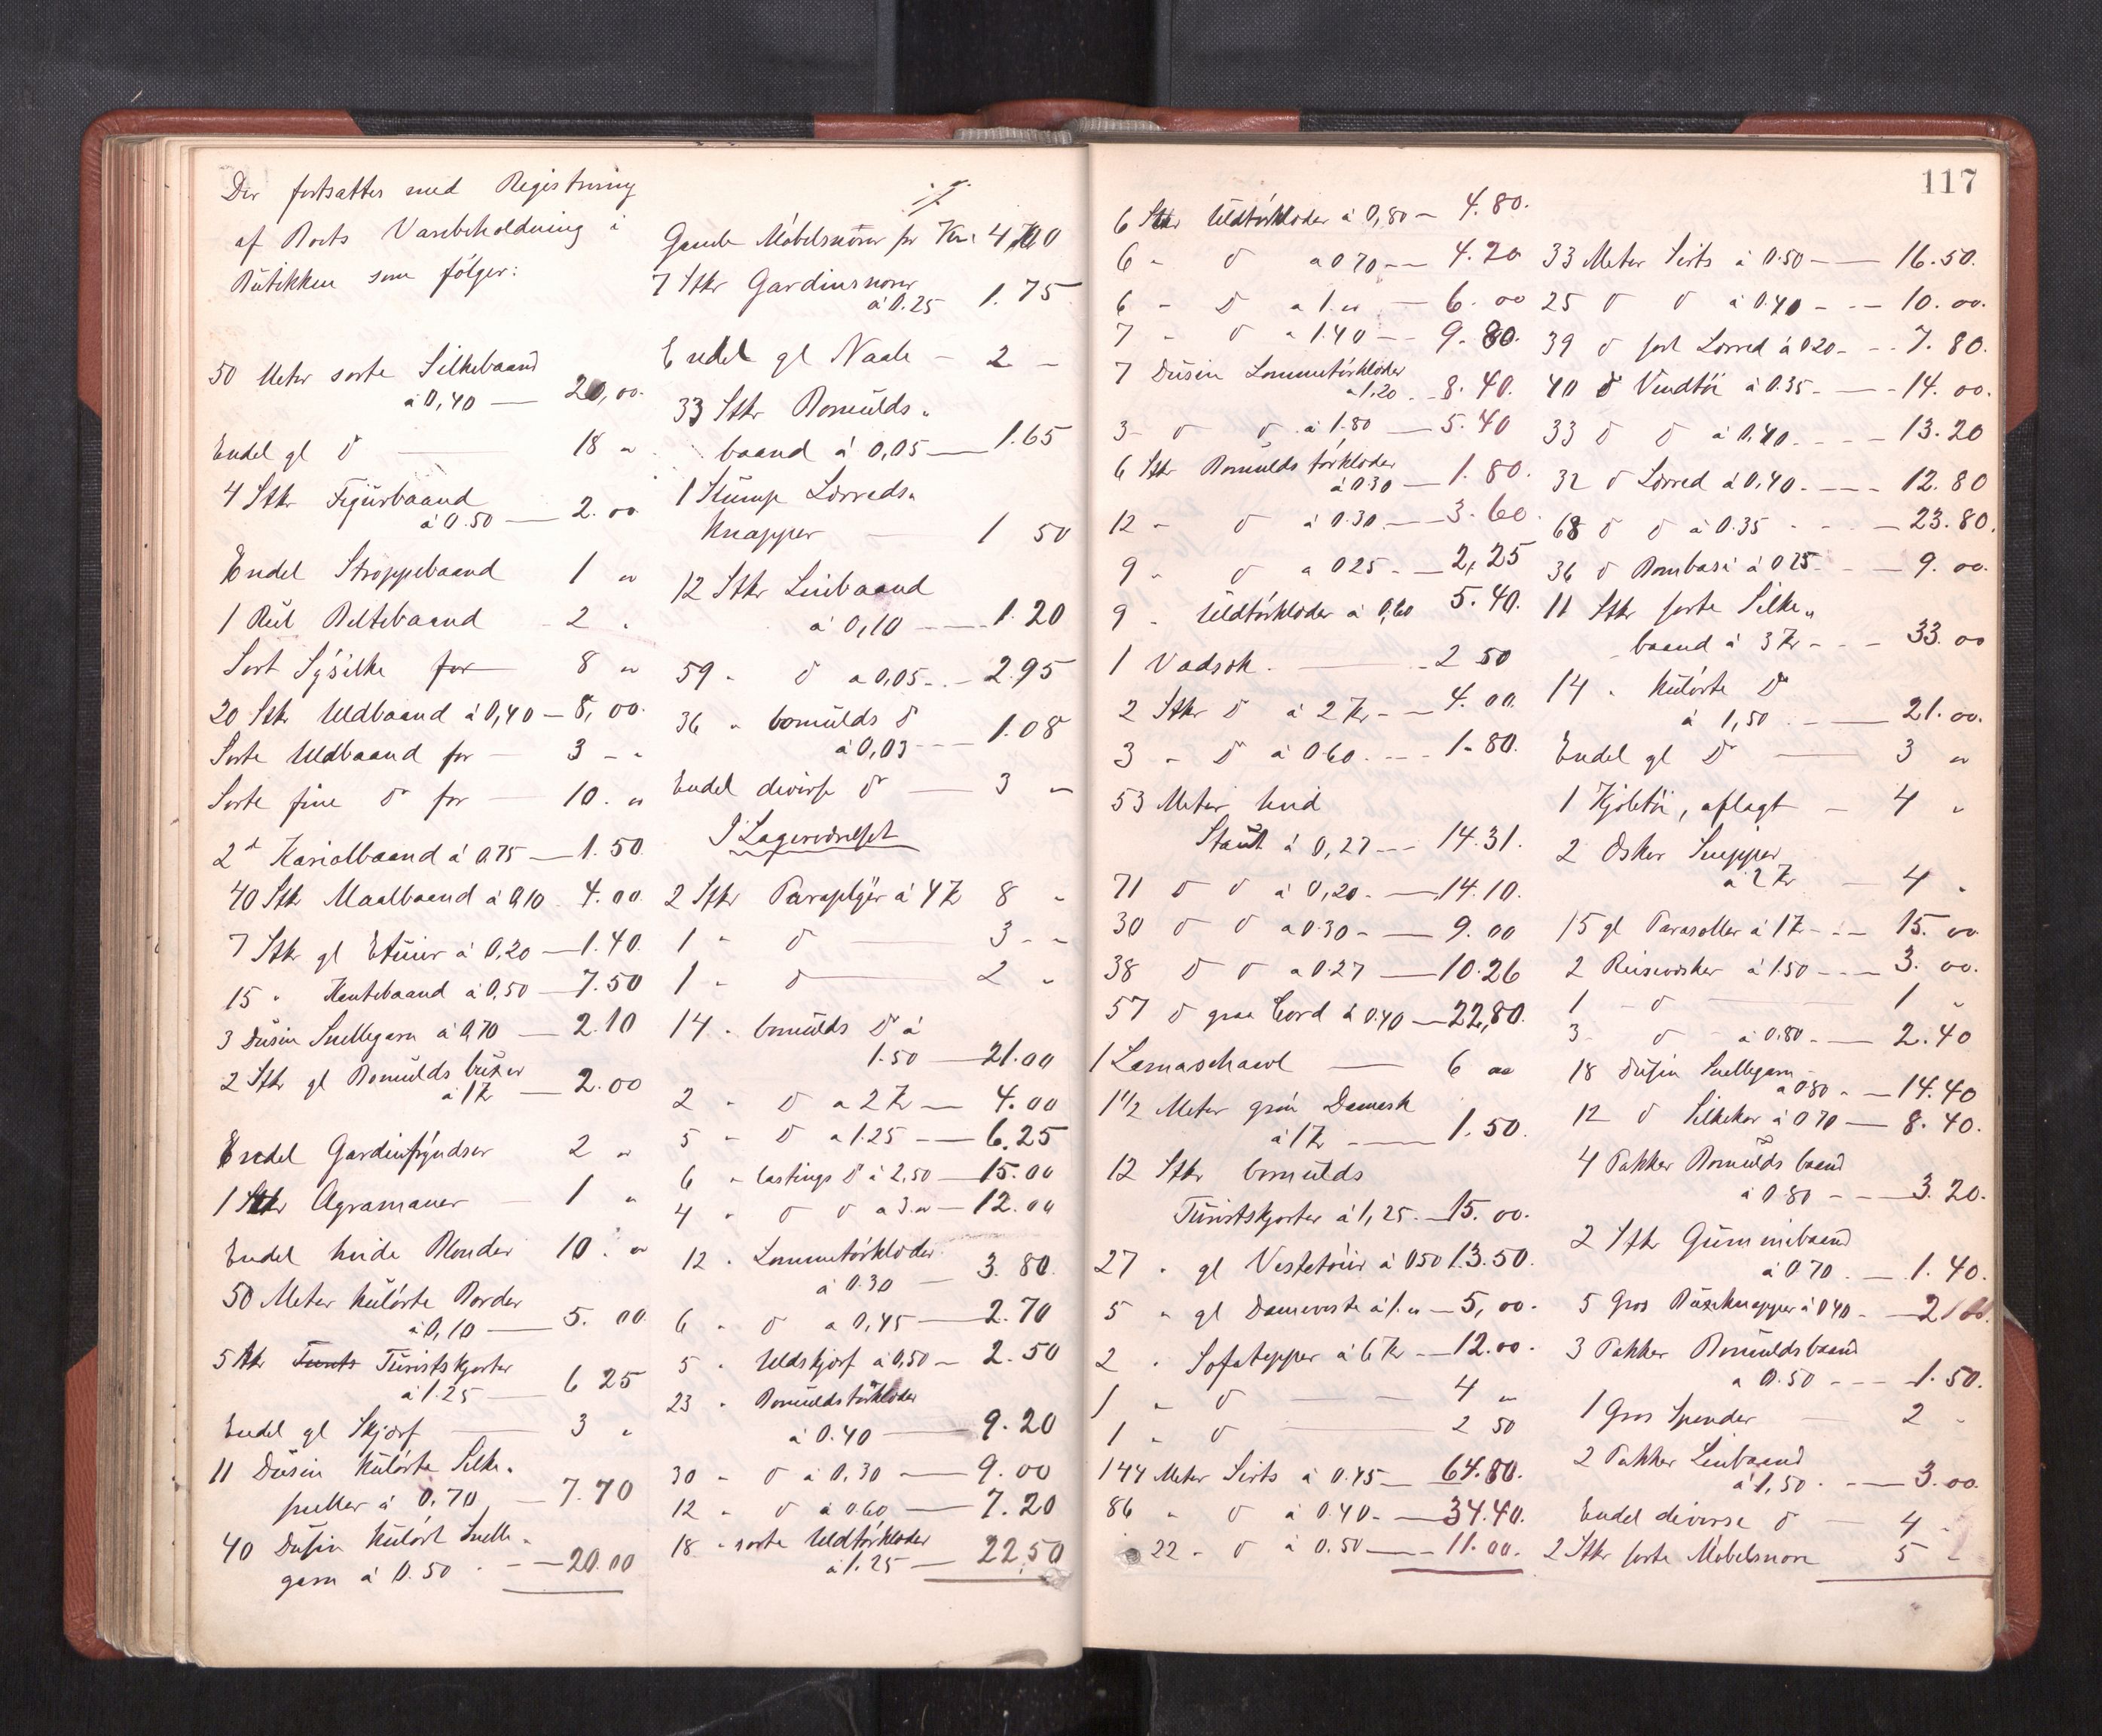 Der fortsattes med Registrering
af Boets Varebeholdning i
Butikken som følger:
50 Meter sorte Silkebaand
à 0,40 — 20,00.
Endel gl d — 18 "
4 Stkr Figurbaand
à 0.50 — 2.00
Endel Stroppebaand 1 "
1 Rul Beltebaand 2 "
Sort Sysilke for 8 "
20 Stkr Uldbaand à 0,40 — 8,00.
Sorte Uldbaand for — 3 - "
Sorte fine d for — 10. "
2 d Kariolbaand à 0.75 — 1.50
40 Stk Maalbaand à 0,10 4.00
7 Stkr gl Etuier à 0,20 — 1.40
15 " Kantebaand à 0,50 — 7.50
3 Dusin Snellegarn à 0,70 — 2.10
2 Stkr gl Bomulds buxer
à 1 Kr — 2.00
Endel Gardinfryndser 2 "
1 Stkr Agramaner 1 "
Endel hvide Blonder 10. "
50 Meter kulørte Border
à 0,10 — 5.00
5 Stkr Turistskjorter
à 1.25 — 6 25
Endel gl Skjørf — 3 "
11 Dusin Kulørte Silke-
sneller à 0,70 — 7.70
40 Dusin Kulørt Snelle-
garn à 0.50 - — 20.00
Gamle Møbelsnorer for Kr. 4,00
7 Stkr Gardinsnorer
à 0.25 1.75
Endel gl Naale — 2 —
33 Stkr Bomulds-
baand à 0,05 — 1.65
1 Stump Lærreds-
Knapper — 1 50
12 Stkr Linbaand
à 0,10 — 1.20
59 " d a 0,05 - — 2.95
36 " bomulds d
à 0,03 — 1.08
Endel diverse d — 3 "
I Lagerværelset
2 Stkr Paraplyer à 4 Kr 8 "
1 " d — 3 - "
1 " d — 2 "
14 " bomulds d à
1.50 — 21.00
2 " d a 2 Kr — 4.00
5 " d a 1.25 — 6.25
6 " lastings d à 2,50 — 15.00
4 " d d a 3 " — 12.00
12 " Lommetørklæder
à 0.30 — 3.80
6 " d a 0,45 — 2.70
5 " Uldskjørf à 0,50 — 2.50
23 " Bomuldstørklæder
à 0.40 — 9.20
30 " d à 0,30 — 9.00
12 " d à 0.60 — 7.20
18 " sorte Uldtørklæder
à 1.25 — 22,50
117
6 Stkr Uldtørklæder à 0,80 — 4.80.
6 " d a 0 70 — 4.20
6 " d a 1. " — 6.00
7 " d a 1.40 — 9.80.
7 Dusin Lommetørklæder
a 1,20 - 8.40.
3 - d d à 1.80 — 5.40
6 Stkr Bomulds tørklæder
à 0.30 — 1.80.
12 " d à 0.30 — 3.60
9 " d a 0 25 — 2,25
9 " Uldtørklæder à 0,60 5.40.
1 Vadsæk — 2 50
2 Stkr d à 2 Kr — 4.00.
3 " d à 0.60 — 1.80.
53 Meter hvid
Staut à 0,27 — 14.31.
71 d d à 0,20 — 14.10.
30 d d a 0.30 — 9.00
38 d d a 0.27 — 10.26
57 d graa Cord à 0.40 — 22,80.
1 Lamaschawl — 6 "
1 1/2 Meter grøn Damask
à 1 Kr — 1.50.
12 Stkr bomulds
Turistskjorter à 1,25 — 15.00.
27 " gl Vestetøier à 0 50 13.50.
5 " gl Dameveste à 1. " — 5,00.
2 " Sofatepper à 6 Kr — 12.00.
1 " d — 4 "
1 " d — 2 50
144 Meter Sirts à 0.45 — 64.80.
86 " d à 0.40 — 34.40.
22 " d à 0.50 — 11.00.
33 Meter Sirts à 0.50 — 16.50.
25 d d à 0.40 — 10.00.
39 d sort Lærred à 0 20 — 7.80.
40 d Vendtøi à 0.35 — 14.00.
33 d d à 0,40 — 13.20
32 d Lærred à 0,40 — 12.80
68 d d à 0.35 — 23.80.
36 d Bombasi à 0 25 — 9.00.
11 Stkr sorte Silke-
baand à 3 Kr — 33.00
14 " kulørte d
à 1,50 — 21.00.
Endel gl d — 3 "
1 Kjoletøi, aflagt — 4 "
2 Æsker Snipper
à 2 Kr — 4 "
15 gl Parasoller à 1 Kr — 15.00
2 Reisevæsker à 1.50 — 3.00.
1 - d — 1 "
3 d à 0,80 — 2.40
18 Dusin Snellegarn
a 0 80 — 14.40
12 d Silkekar à 0 70 — 8.40.
4 Pakker Bomulds baand
à 0.80 — 3.20.
2 Stkr Gummibaand
à 0 70 — 1.40.
5 Gros Buxeknapper à 0 40 — 2.00.
3 Pakker Bomuldsbaand
a 0.50 — 1.50.
1 Gros Spender — 2 "
2 Pakker Linbaand
à 1,50 — 3.00.
Endel diverse d — 4 "
2 Stkr sorte Møbelsnore 5 "